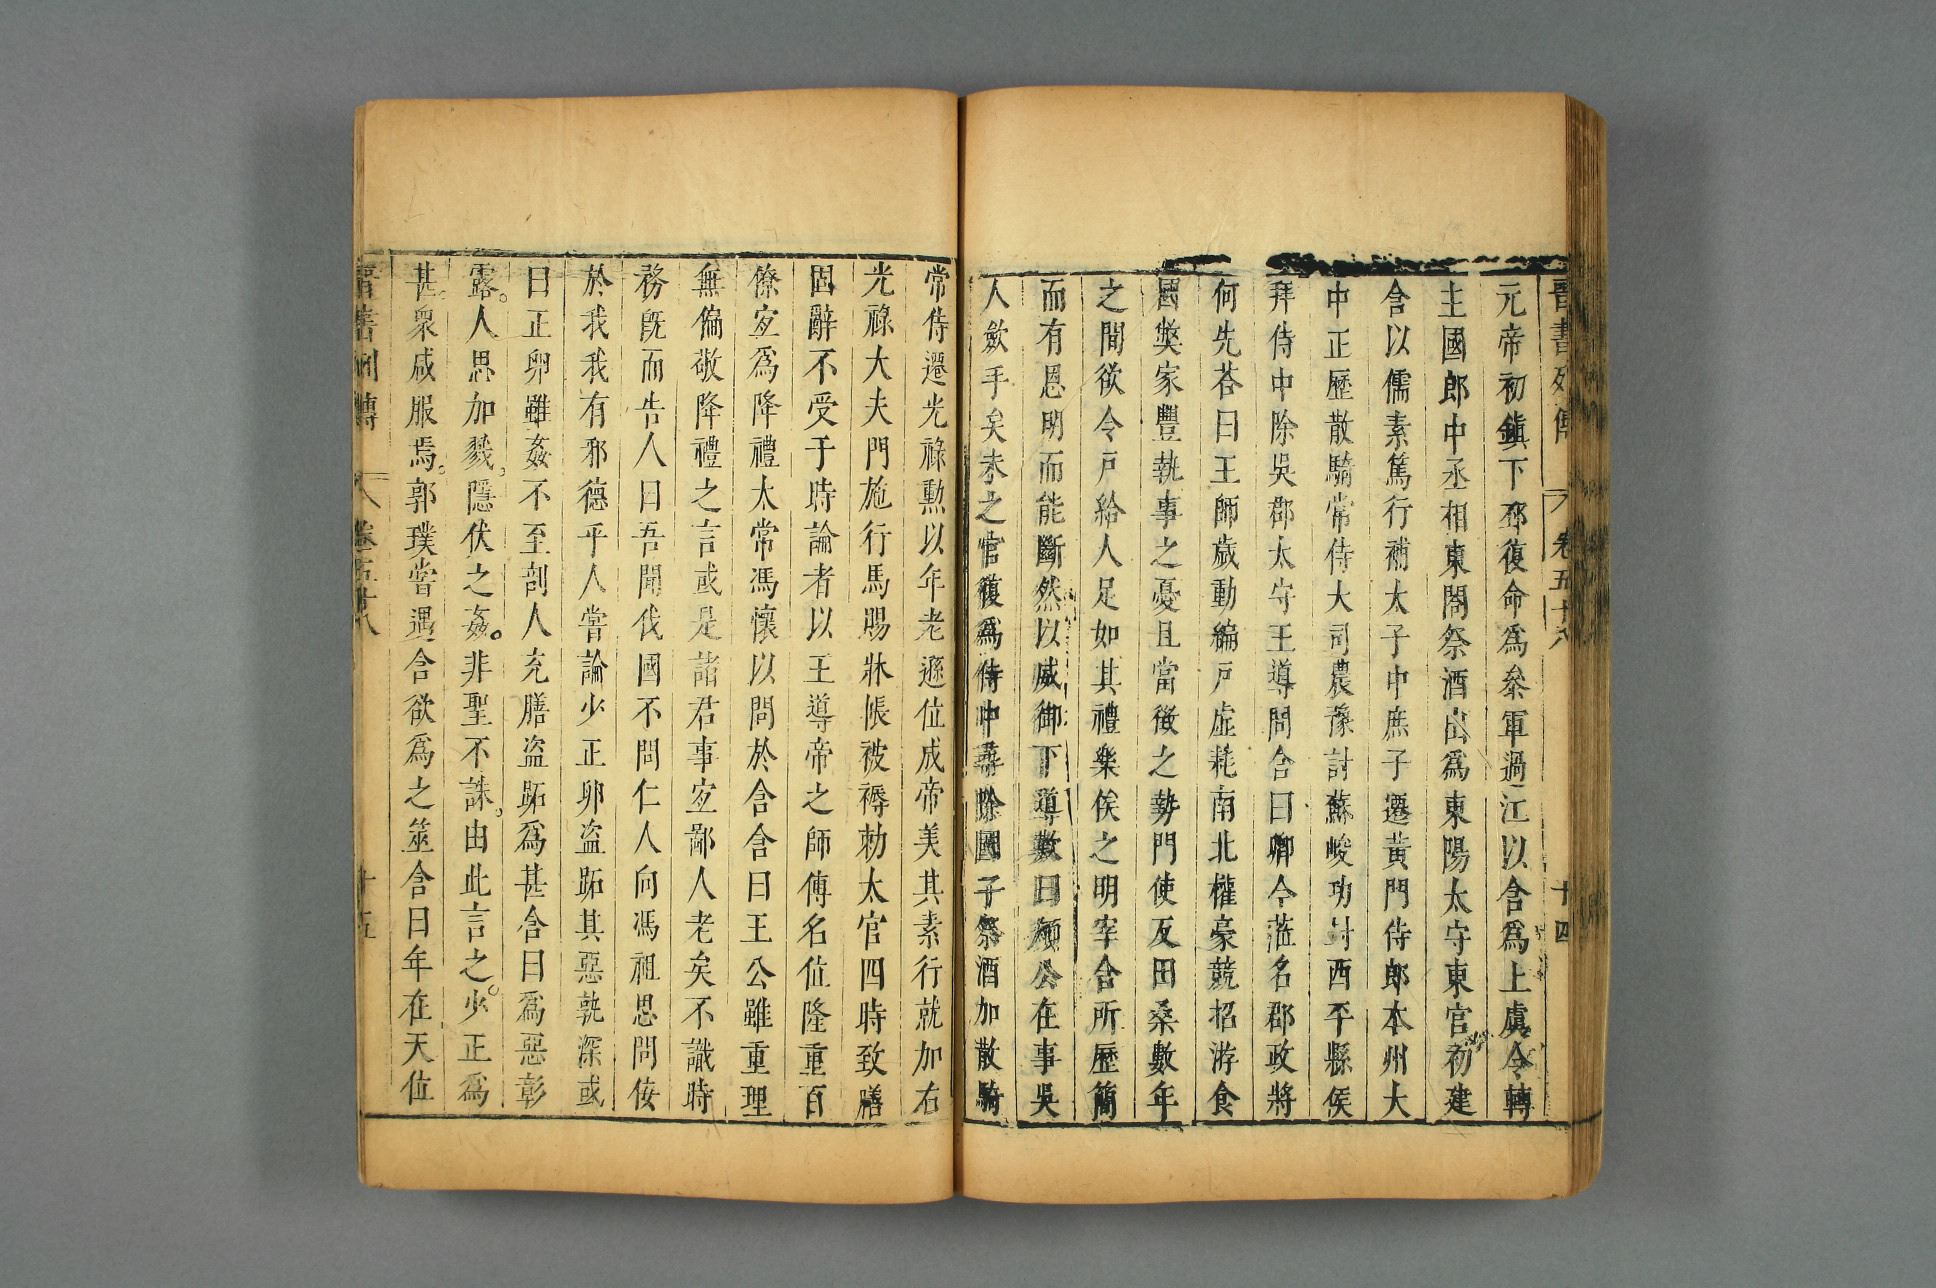 晉書列傳 卷五十八 十四
元帝初鎮下邳復命爲叅軍過江以含爲上虞令轉
王國郎中丞相東閤祭酒出爲東陽太守東宮初建
含以儒素篤行補太子中庶子遷黃門侍郎本州大
中正歷散騎常侍大司農豫討蘇峻功封西平縣侯
拜侍中除吳郡太守王導問含曰卿今蒞名郡政將
何先荅曰王師歲動編戸虛耗南北權豪競招游食
國獘家豐執事之憂且當徵之勢門使反田桑數年
之間欲令戸給人足如其禮樂俟之明宰含所歷簡
而有恩明而能斷然以威御下導歎曰顏公在事吳
人歛手矣未之官復爲侍中尋除國子祭酒加散騎
常侍遷光祿勲以年老遜位成帝美其素行就加右
光祿大夫門施行馬賜牀帳被褥勑太官四時致膳
固辭不受于時論者以王導帝之師傅名位隆重百
僚宐爲降禮太常馮懷以問於含含曰王公雖重理
無偏敬降禮之言或是諸君事宐鄙人老矣不識時
務旣而告人曰吾聞伐國不問仁人向馮祖思問佞
於我我有邪德乎人嘗論少正卯盜跖其惡孰深或
曰正卯雖姦不至剖人充膳盜跖爲甚含曰爲惡彰
露。人思加戮。隱伏之姦。非聖不誅。由此言之。少正爲
甚。衆咸服焉。郭璞嘗遇含欲爲之筮含曰年在天位
晉書列傳 卷五十八 十五